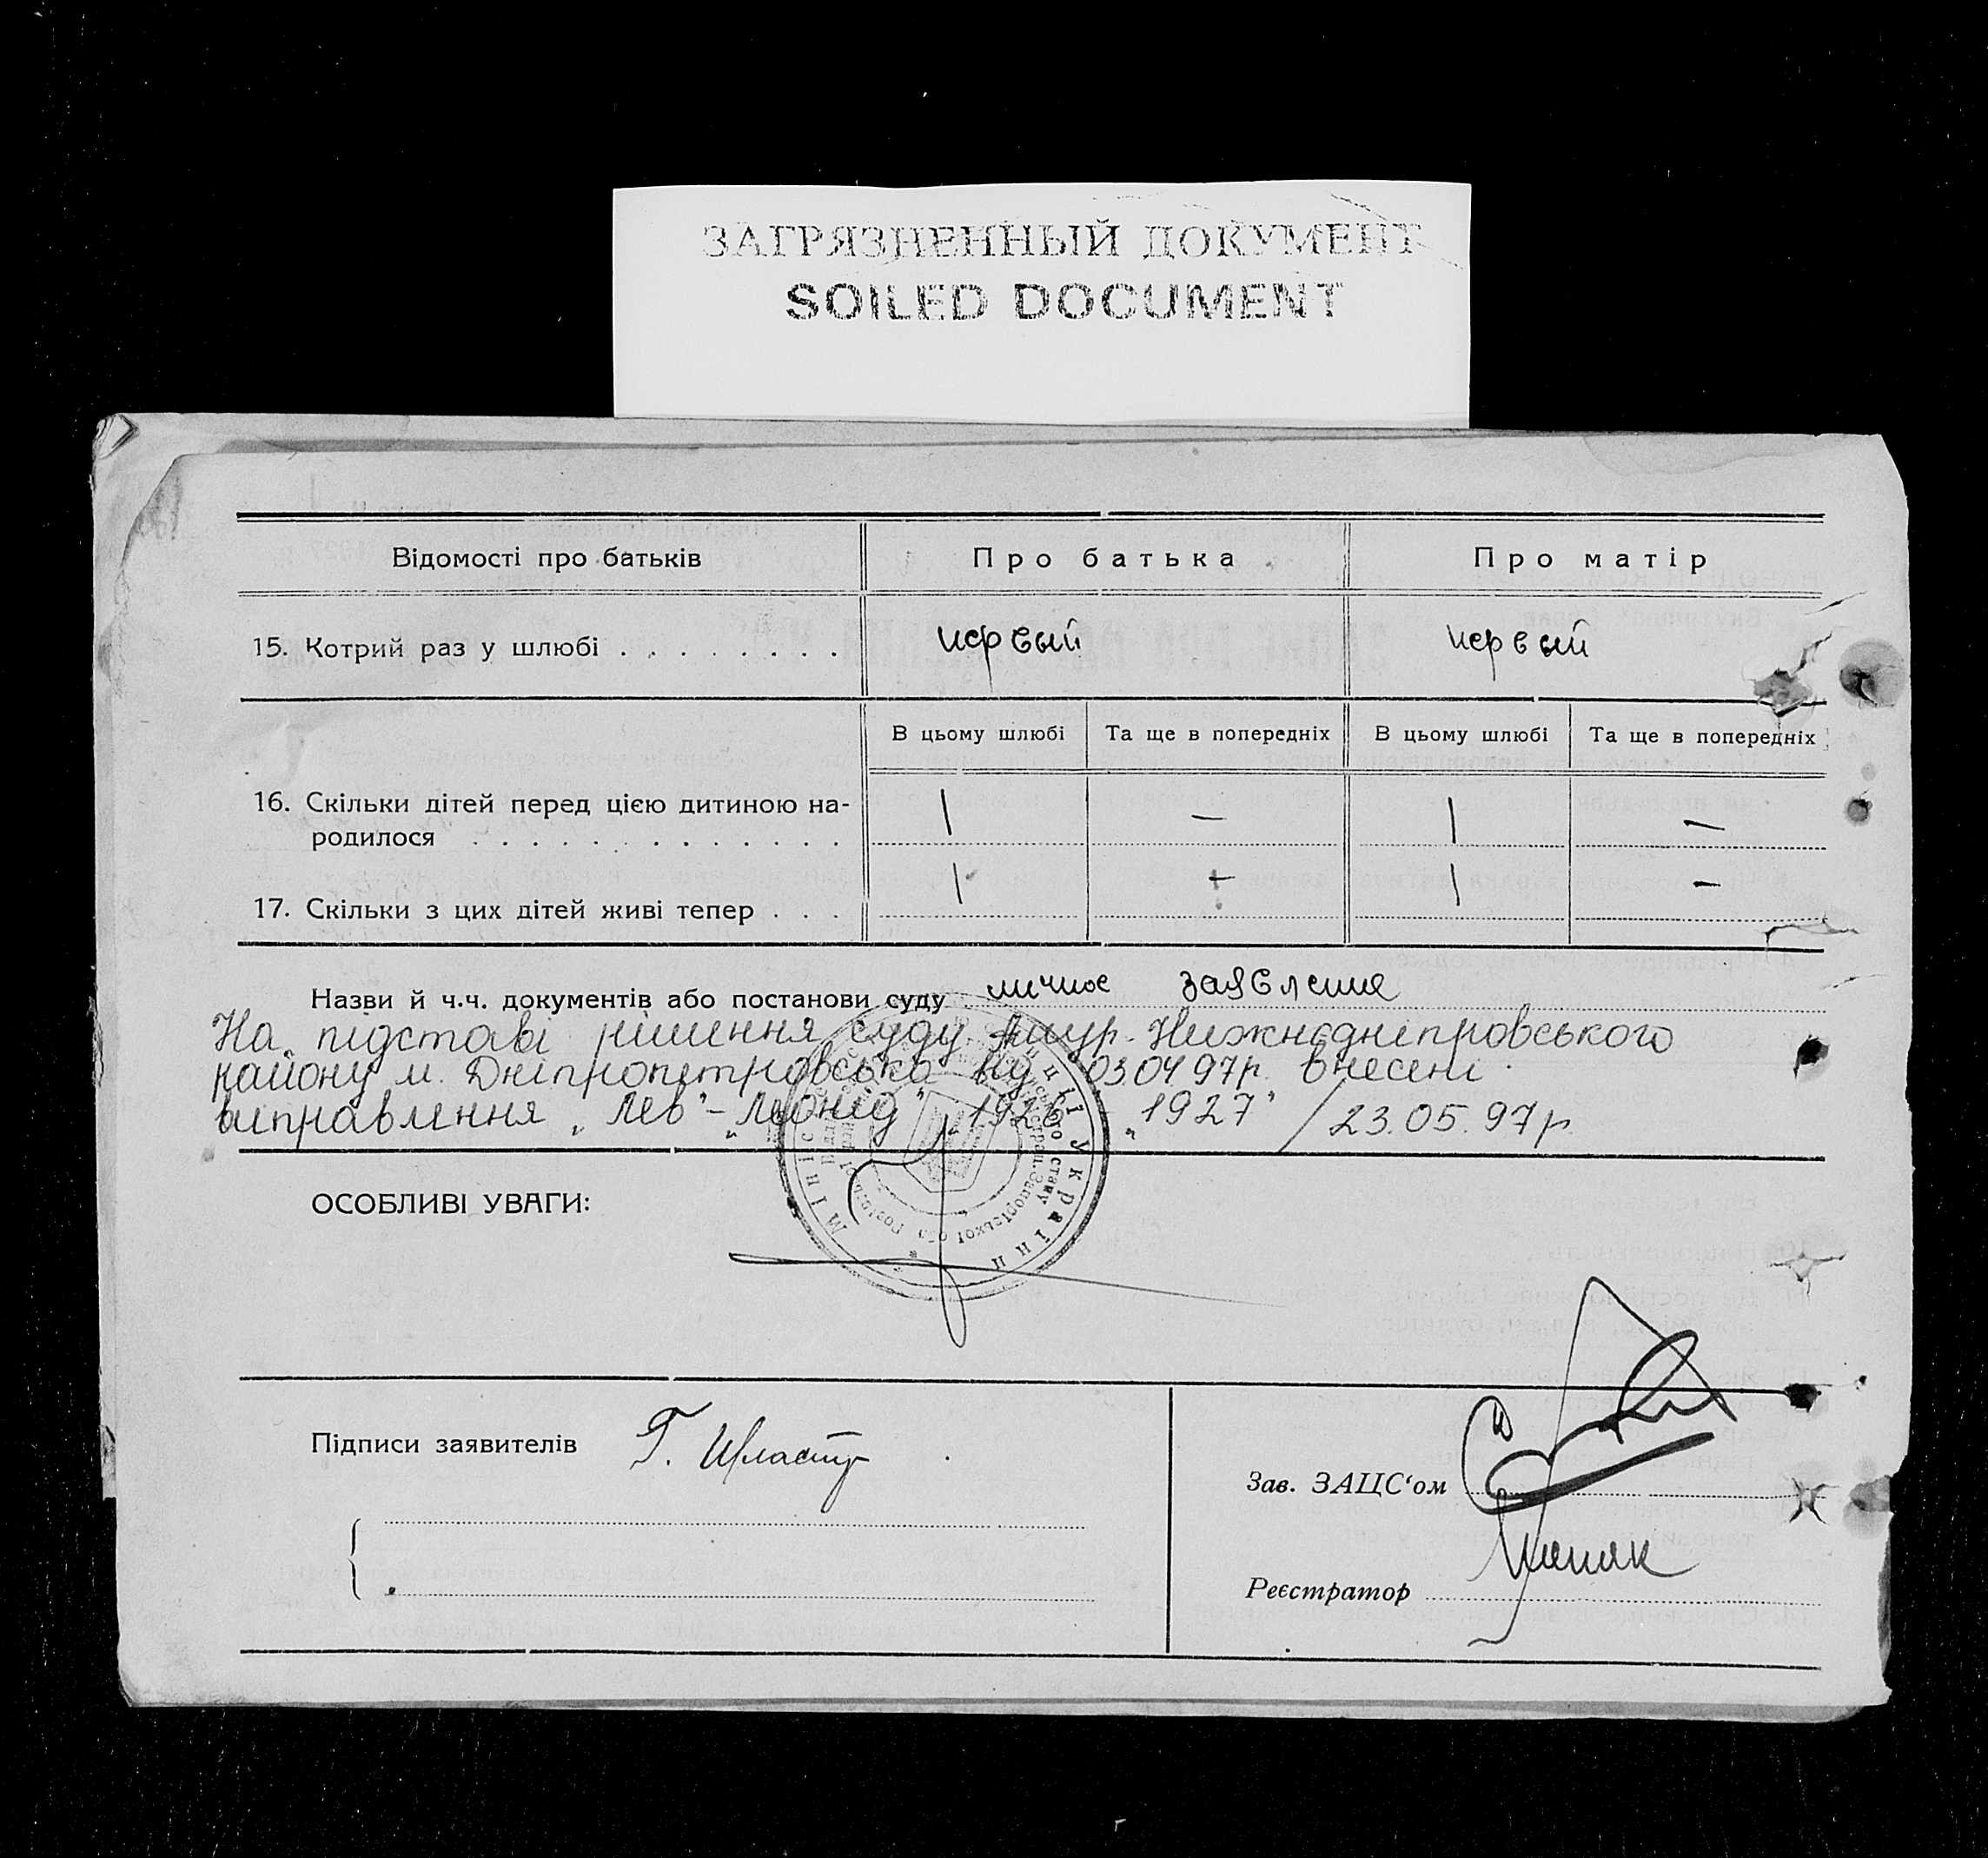 ЗАГРЯЗНЕННЫЙ ДОКУМЕНТ
SOILED DOCUMENT
Відомості про батьків Про батька Про матір
15. Котрий раз у шлюбі . . . . . . . . первый первый
В цьому шлюбі Та ще в попередніх В цьому шлюбі Та ще в попередніх
16. Скільки дітей перед цією дитиною на-
родилося . . . . . . . . . . . . . 1 — 1 —
17. Скільки з цих дітей живі тепер . . . 1 + 1 —
Назви й ч.ч. документів або постанови суду личное заявление
На підставі рішення суду Амур-Нижнєдніпровського
району м. Дніпропетровська від 03.04 97р. внесені
виправлення „Лев"-„Леонід" „1926 - „1927" / 23.05.97р
Міністерство юстиції України
ОСОБЛИВІ УВАГИ:
Підписи заявителів Г.
Зав. ЗАЦС'ом
Реєстратор